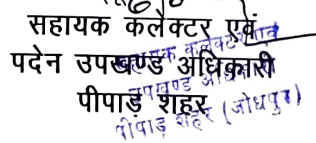 सहायक कलेक्टर एवं
पदेन उपखण्ड अधिकारी
पीपाड़ शहर
सहायक कलेक्टर एवं
उपखण्ड अधि
पीपाड़ शहर (जोधपुर)